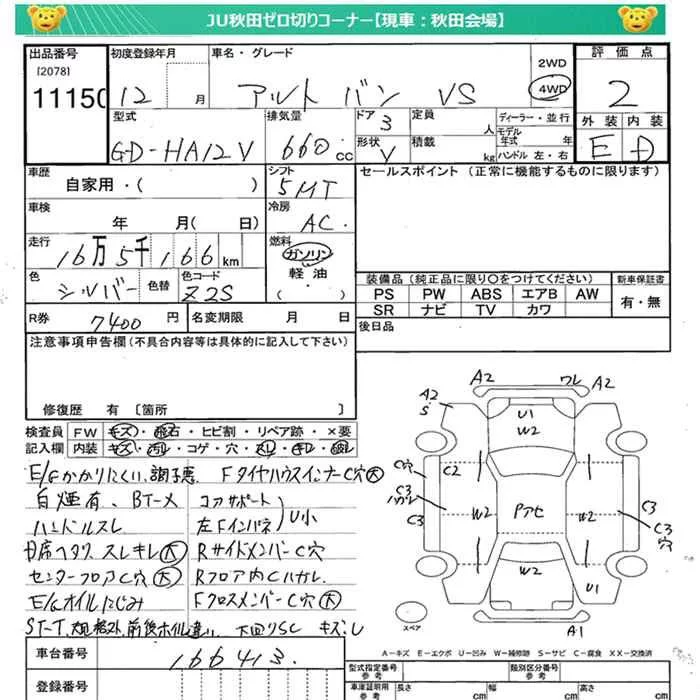 JU秋田ゼロ切りコーナー【現車：秋田会場】
出品番号 初度登録年月 車名・グレード 2WD 評価点
[2078]
11150 12 月 アルト バン VS 4WD 2
型式 排気量 ドア 3 定員 人 ディーラー・並行 外装 内装
GD-HA12V 660 cc 形状 V 積載 kg モデル年式 年 ハンドル 左・右 E D
車歴 シフト セールスポイント (正常に機能するものに限ります)
自家用・( ) 5MT
車検 冷房
年 月( 日) AC
走行 燃料
16万5千166km ガソリン
色 色替 色コード 軽油
シルバー Z2S ( )
装備品 (純正品に限り○をつけてください) 新車保証書
PS PW ABS エアB AW 有・無
SR ナビ TV カワ
R券 7400 円 名変期限 月 日 後日品
注意事項申告欄(不具合内容等は具体的に記入して下さい)
修復歴 有 [箇所 ]
検査員 FW キズ・飛石・ヒビ割・リペア跡・×要
記入欄 内装 キズ・汚レ・コゲ・穴・スレ・キレ・
E/Gかかりにくい、調子悪 FタイヤハウスインナーC穴大
白煙有、BT-× コアサポート
ハンドルスレ 左Fインパネ U小
スレキレ大 RサイドメンバーC穴
センターフロアC穴大 Rフロア内Cハガレ
E/Gオイルにじみ FクロスメンバーC穴大
ST-T、規格外、前後ホイル違い 下回りSC キズ、U
A2 ワレ A2
A2
S
U1
W2
C穴 C2
C3
ハガレ C3 W2 Pアセ W2 C3
C3
穴
W2 U1
スペア A1
A-キズ E-エクボ U-凹み W-補修跡 S-サビ C-腐食 XX-交換済
車台番号 166413
登録番号
型式指定番号 参考 類別区分番号 参考
車庫証明用 参考 長さ cm 幅 cm 高さ cm